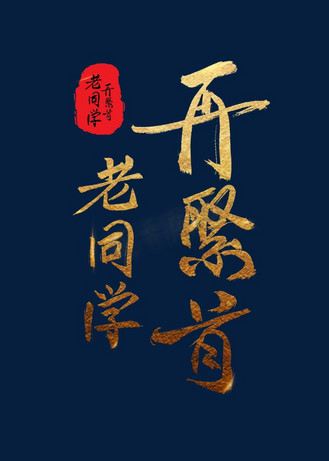 再聚首
老同学
再聚首
老同学